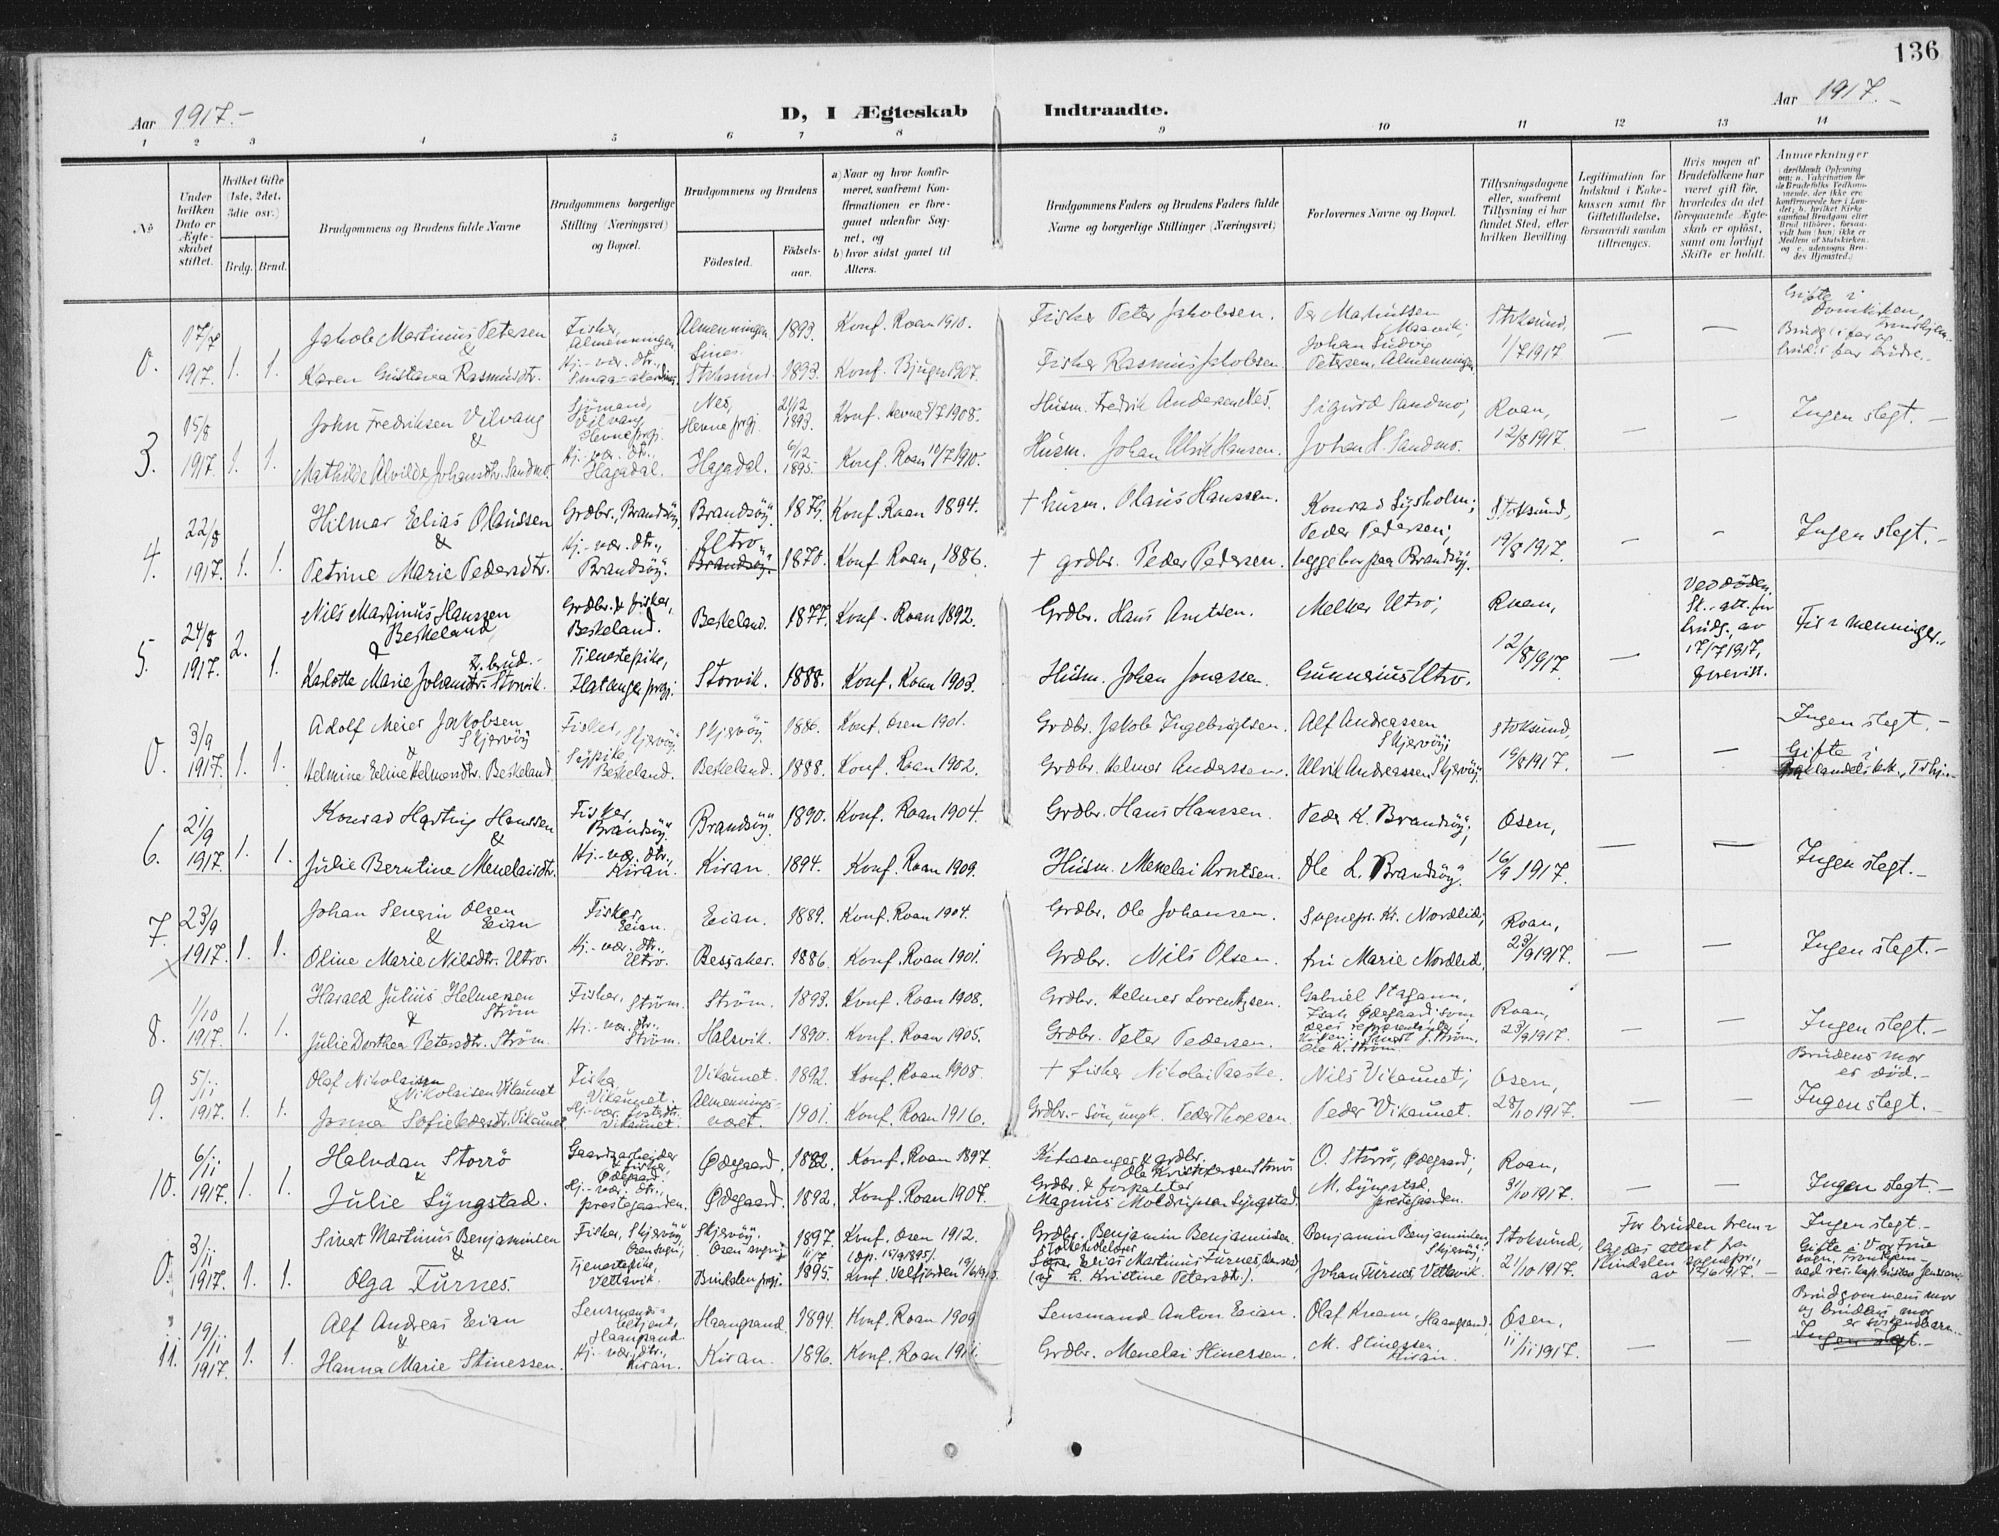 136
Aar 1917.-
D, I Ægteskab Indtraadte.
Aar 1917.-
1 2 3 4 5 6 7 8 9 10 11 12 13 14
No
Under hvilken Dato er Ægteskabet stiftet.
Hvilket Gifte (1ste, 2det, 3die osv.)
Brdg. Brud.
Brudgommens og Brudens fulde Navne
Brudgommens borgerlige Stilling (Næringsvei) og Bopæl.
Brudgommens og Brudens
Fødested.
Fødselsaar.
a) Naar og hvor konfirmeret, saafremt Konfirmationen er foregaaet udenfor Sognet, og
b) hvor sidst gaaet til Alters.
Brudgommens Faders og Brudens Faders fulde Navne og borgerlige Stillinger (Næringsvei)
Forlovernes Navne og Bopæl.
Tillysningsdagene eller, saafremt Tillysning ei har fundet Sted, efter hvilken Bevilling
Legitimation for Indskud i Enkekassen samt for Giftetilladelse, forsaavidt saadan tiltrænges.
Hvis nogen af Brudefolkene har været gift før, hvorledes da det foregaaende Ægteskab er opløst, samt om lovligt Skifte er holdt.
Anmærkninger (deriblandt Oplysning om: a. Vaksination for de Brudefolks Vedkommende, der ikke ere konfirmerede her i Landet; b. hvilket Kirkesamfund Brudgom eller Brud tilhører, forsaavidt han (hun) ikke er Medlem af Statskirken, og c. udensogns Brudes Hjemsted.)
0. 17/7 1917. 1. 1. Jakob Martinus Petersen Fisker, Almenningen Almenningen 1893. Konf. Roan 1910. Fisker Peter Jakobsen. Per Martinssen Stoksund, — — Gifte i Domkirken,
& Karen Gustava Rasmusdtr. Hj.-vær. dtr. Sines Stoksund. 1893. Konf. Bjugn 1907. Fisker Rasmus Jakobsen Johan Ludvig Petersen, Almenningen 1/7 1917
3. 15/8 1917. 1. 1. John Fredriksen Vilvang Sjömand, Vilvang Hevne prgj. Nes, Hevne prgj. 21/12 1893. Konf. Hevne 5/7 1908. Husm. Fredrik Andersen Nes. Sigurd Sandmo, Roan, — — Ingen slegt. —
& Mathilde Alvilde Johansdtr. Sandmo. Hj. vær. dtr., Hagadal. Hagadal. 6/12 1895. Konf. Roan 10/7 1910. Husm. Johan Ulrik Hansen. Johan H. Sandmo. 12/8 1917.
4. 22/8 1917. 1. 1. Hilmar Eelias Olaussen Grdbr., Brandsöÿ. Brandsöÿ. 1879. Konf. Roan 1894. † husm. Olaus Hanssen. Konrad Sysholm; Stoksund, — — Ingen slegt. —
& Petrine Marie Pedersdtr. Hj.-vær. dtr., Brandsöÿ. Utro Brandsöÿ. 1870. Konf Roan, 1886. † grdbr. Peder Pedersen. Peder Pedersen; begge bor paa Brandsöÿ. 19/8 1917.
5. 24/8 1917. 2. 1. Nils Martinus Hanssen Beskeland Grdbr. & fisker, Beskeland. Beskeland. 1877. Konf. Roan 1892. Grdbr. Hans Arntsen. Melker Utro; Roan, — Ved döden. Sk.-att. for brudg. av 17/7 1917, forevist. Fir-menninger.
& Karlotte Marie Johansdtr. Storvik. Tjenestepike, Flatanger prgj. Storvik. 1888. Konf. Roan 1903. Husm. Johan Jonassen. Gunnerius Utro. 12/8 1917.
0. 3/9 1917. 1. 1. Adolf Meier Jakobsen Skjervöÿ Fisker, Skjervöÿ. Skjervöÿ. 1886. Konf. Osen 1901. Grdbr. Jakob Ingebrigtsen. Alf Andreassen Skjervöÿ; Stoksund, — — Ingen slegt. —
& Helmine Eeline Helmersdtr. Beskeland Sypike, Beskeland. Beskeland. 1888. Konf. Roan 1902. Grdbr. Helmer Anderssen. Ulrik Andreassen Skjervöÿ. 19/8 1917. Gifte i
6. 21/9 1917. 1. 1. Konrad Hartvig Hanssen Fisker, Brandsöÿ. Brandsöÿ. 1890. Konf. Roan 1904. Grdbr. Hans Hanssen. Peder K. Brandsöÿ; Osen, — — Ingen slegt. —
& Julie Berntine Menelaisdtr. Hj.-vær. dtr., Kiran. Kiran. 1894. Konf. Roan 1909. Husm. Menelai Arntsen. Ole L. Brandsöÿ. 16/9 1917.
7. 23/9 1917. 1. 1. Johan Senerin Olsen Eeian Fisker, Eeian. Eeian. 1889. Konf. Roan 1904. Grdbr. Ole Johansen. Sognepr. Kr. Nordlid; Roan, — — Ingen slegt. —
& Oline Marie Nilsdtr. Utro. Hj.-vær. dtr. Utro. Bessaker. 1886. Konf. Roan 1901. Grdbr. Nils Olsen. fru Marie Nordlid. 23/9 1917.
8. 1/10 1917. 1. 1. Harald Julius Helmersen Ström Fisker, Ström. Ström. 1893. Konf. Roan 1908. Grdbr. Helmer Lorentzsen. Gabriel Stagann, Roan, — — Ingen slegt. —
& Julie Dorthea Petersdtr. Ström. Hj.-vær. dtr. Ström. Halsvik. 1890. Konf. Roan 1905. Grdbr. Peter Pedersen. Isak Ødegaard som Ole K. Ström. 23/9 1917.
9. 5/11 1917. 1. 1. Olaf Nikolaisen Vikaunet Fisker, Vikaunet. Vikaunet. 1892. Konf. Roan 1908. † fisker Nikolai Paaske. Nils Vikaunet; Osen, — — Brudens mor er död. —
& Jonna Sofie Pedersdtr. Vikaunet. Hj.-vær. fosterdtr. Vikaunet. Almenningsvær. 1901. Konf. Roan 1916. Grdbr.-sön, ungk. Peder Thoresen. Peder Vikaunet. 28/10 1917. Ingen slegt. —
10. 6/11 1917. 1. 1. Halvdan Storrö Gaardsarbeider & fisker, Ødegaard. Ødegaard. 1882. Konf. Roan 1897. Kirkesanger & grdbr. Ole Kristoffersen Storrö O. Storrö, Ødegaard; Roan, — — Ingen slegt. —
& Julie Lyngstad. Hj.-vær. dtr., prestegaarden. Ødegaard. 1892. Konf. Roan 1907. Grdbr. & forpakter Magnus Lyngstad. M. Lyngstad prestegaarden. 31/10 1917.
0. 3/11 1917. 1. 1. Sivert Martinus Benjaminsen Fisker, Skjervöÿ, Osen sogn; Skjervöÿ, Osen sogn; 1897. Konf. Osen 1912. Grdbr. Benjamin Benjaminsen Benjamin Benjaminsen, Skjervöÿ; Stoksund, For bruden fremlagdes attest fra Bindalen sognepr., av 14/6 1917. — Ingen slegt. —
& Olga Furnes. Tjenestepike, Vettavik. Bindalen prgj. 11/7 1895. (Dp. 15/9 1895). Konf. Velfjorden Elias Martinus Furnes (og h. Kristine Petersdtr.). Johan Furnes, Vettavik. 21/10 1917. Gifte i Vor Frue
11. 19/11 1917. 1. 1. Alf Andreas Eeian Lensmandsbetjent, Haangrand. Haangrand. 1894. Konf. Roan 1909. Lensmand Anton Eeian. Olaf Knem, Haangrand; Osen, — — Brudgommens mor og brudens mor er söskendbarn. —
& Hanna Marie Stinessen. Hj.-vær. dtr., Kiran. Kiran. 1896. Konf. Roan 1911. Grdbr. Menelai Stinessen. M. Stinessen, Kiran. 11/11 1917. Ingen slegt. —